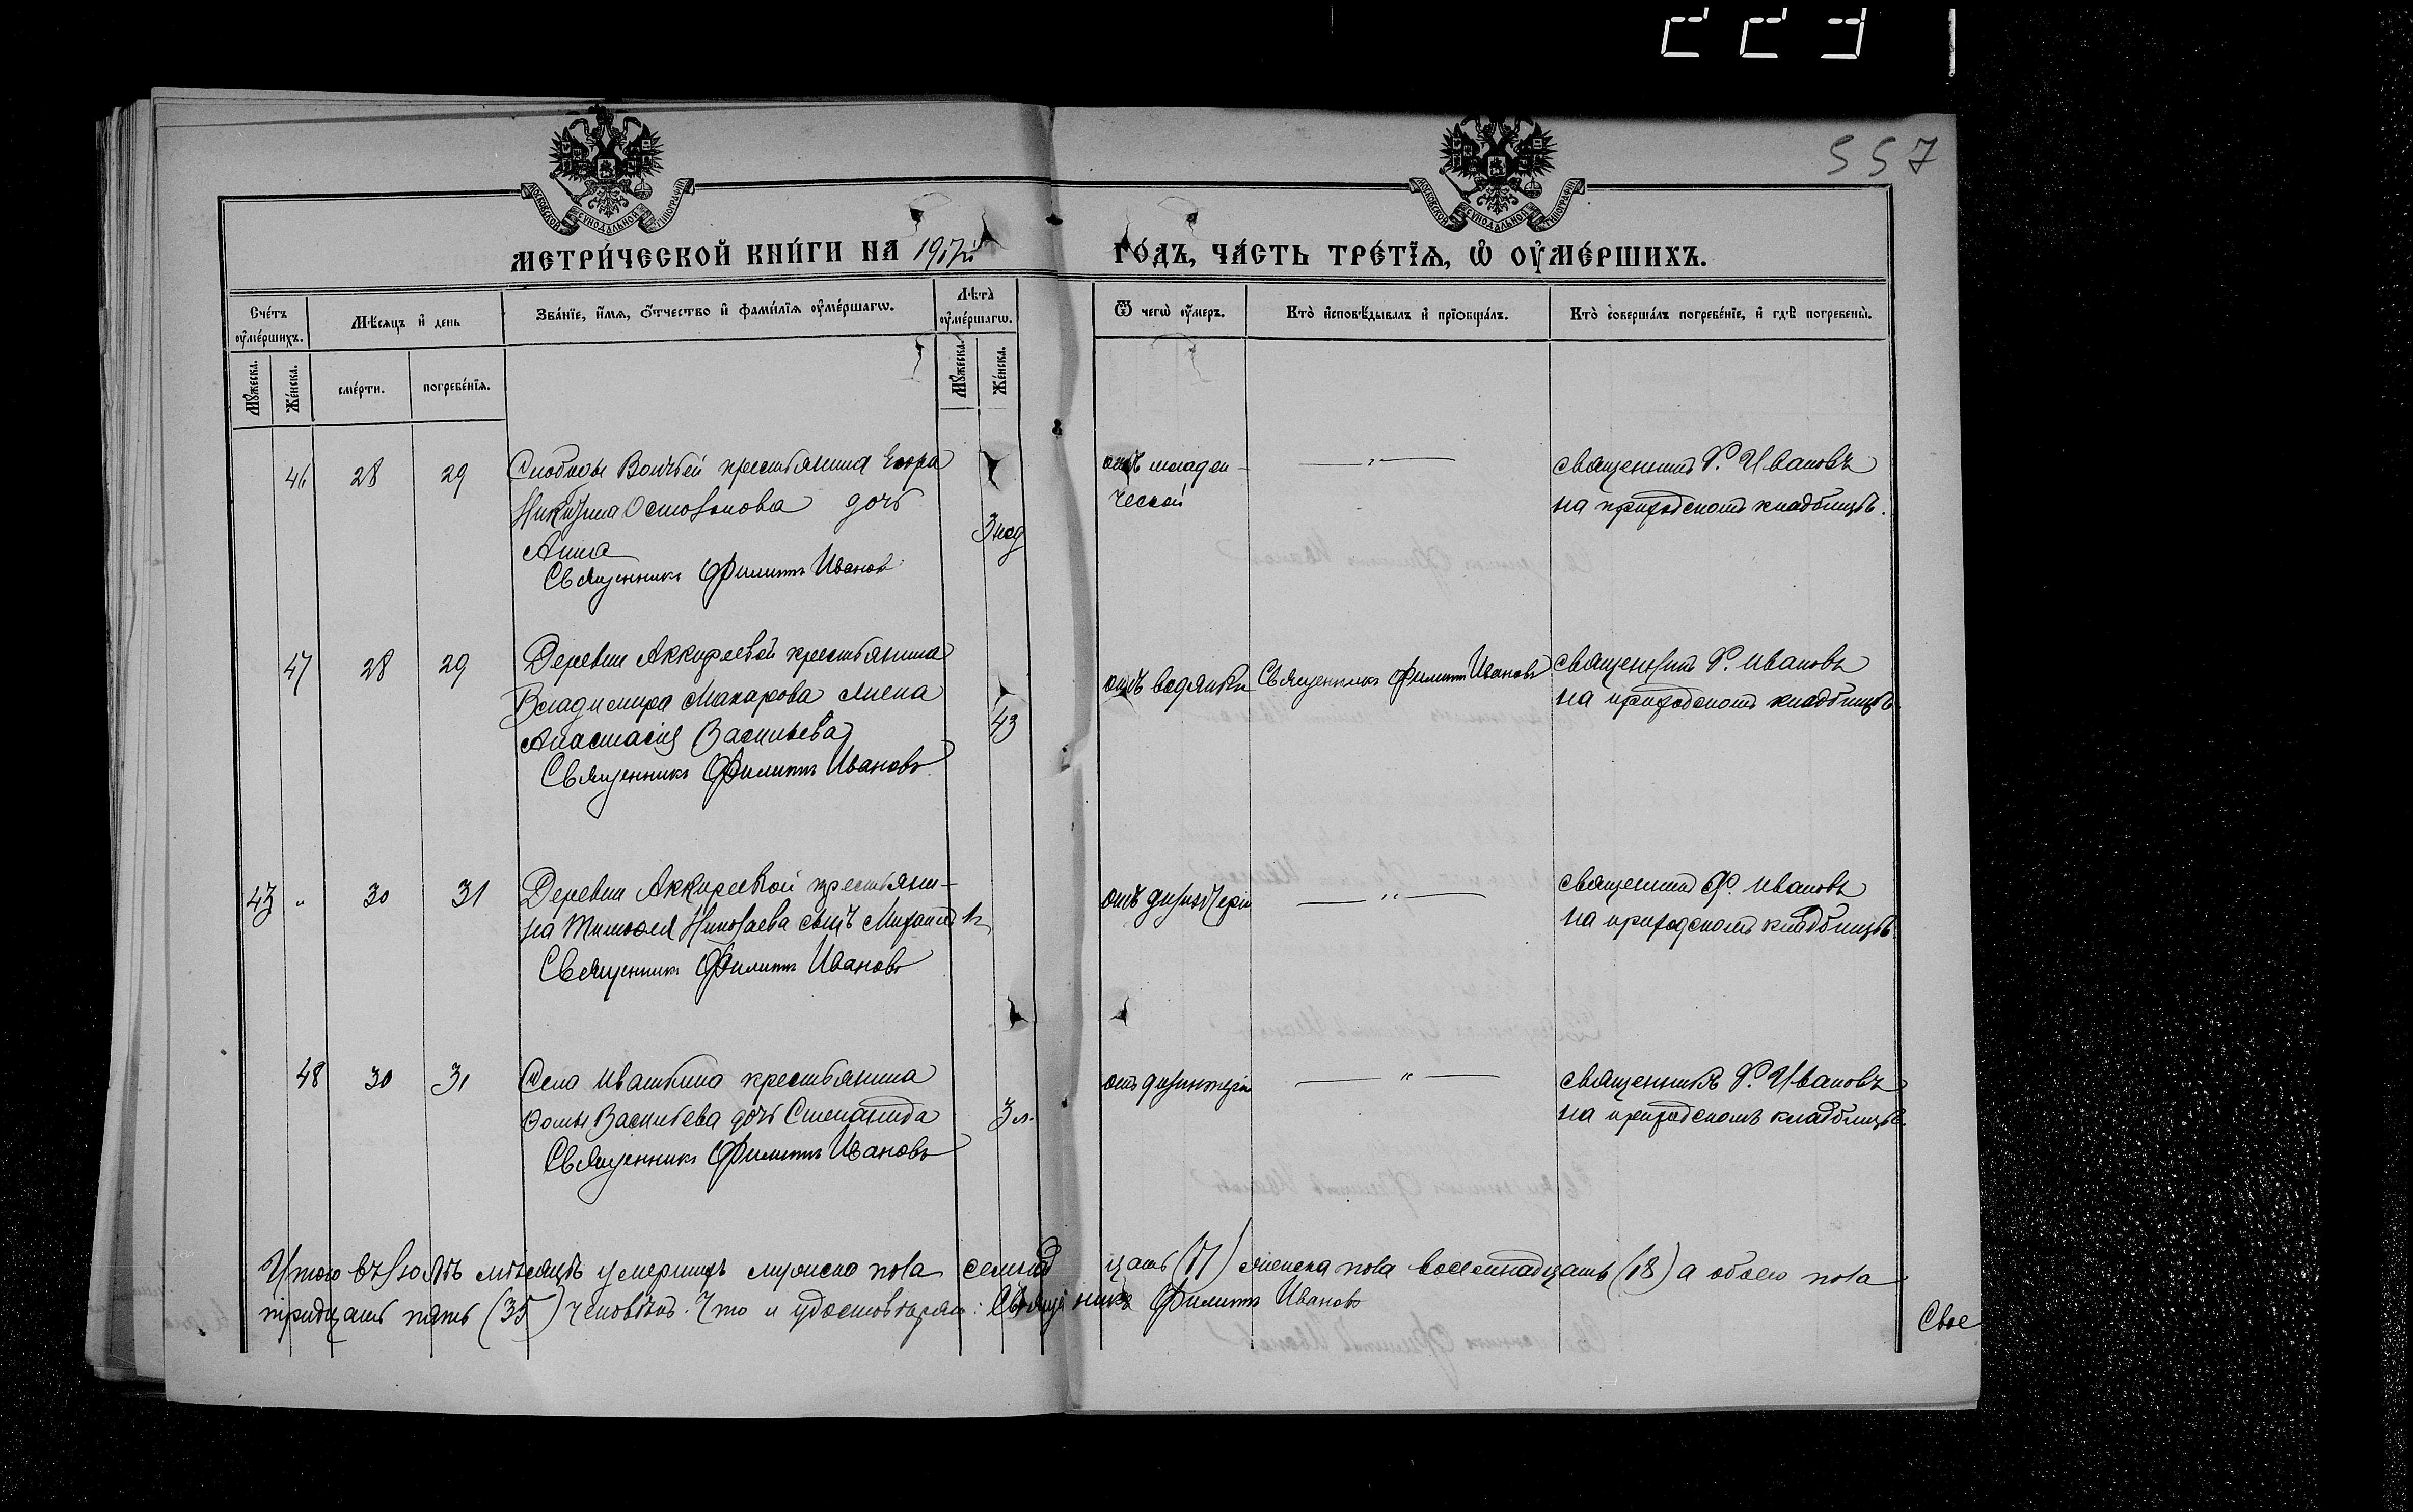 557
МОСКОВСКОЙ СѴНОДАЛЬНОЙ ТИПОГРАФІИ
МОСКОВСКОЙ СѴНОДАЛЬНОЙ ТИПОГРАФІИ
МЕТРИ́ЧЕСКОЙ КНИ́ГИ НА 1917й ГО́ДЪ, ЧА́СТЬ ТРЕ́ТЇѦ, Ѡ҆ ОУ҆МЕ́РШИХЪ.
Сче́тъ оу҆ме́ршихъ.
Мꙋ́жеска.
Же́нска.
Мѣ́сѧцъ и҆ день
сме́рти.
погребе́нїѧ.
Зва́нїе, и҆́мѧ, ѻ҆́тчество и҆ фами́лїѧ оу҆ме́ршагѡ.
Лѣ́та оу҆ме́ршагѡ.
Мꙋ́жеска.
Же́нска.
Ѿ чегѡ̀ оу҆́меръ.
Кто̀ и҆сповѣ́дывалъ и҆ прїѻбща́лъ.
Кто̀ соверша́лъ погребе́нїе, и҆ гдѣ̀ погребены̀.
46 28 29 Слободы Волчьей крестьянина Егора
дочь
Анна
3 нед
Священникъ Филиппъ Иванов
отъ младен-
ческой
— „ —
священникъ Ф. Ивановъ
на приходскомъ кладбищѣ.
47 28 29 Деревни Аккиреевой крестьянина
Владимира Макарова жена
Анастасія Васильева
43
Священникъ Филиппъ Ивановъ
отъ водянки
Священникъ Филиппъ Ивановъ
священникъ Ф. Ивановъ
на приходскомъ кладбищѣ
43 „ 30 31 Деревни Аккиреевой крестьяни-
на Тимоѳея Николаева сынъ Михаилъ
Священникъ Филиппъ Ивановъ
отъ дизинтеріи
— „ —
священникъ Ф. Ивановъ
на приходскомъ кладбищѣ
48 30 31 Села Ивашкина крестьянина
Ѳомы Васильева дочь Степанида
3 л.
Священникъ Филиппъ Ивановъ
отъ дизинтеріи
— „ —
священникъ Ф. Ивановъ
на приходскомъ кладбищѣ.
Итого въ Іюлѣ мѣсяцѣ умершихъ мужска пола семнадцать (17) женска пола восемнадцать (18) а обоего пола
тридцать пять (35) человѣкъ. Что и удостовѣряю: Священникъ Филиппъ Ивановъ
Свое